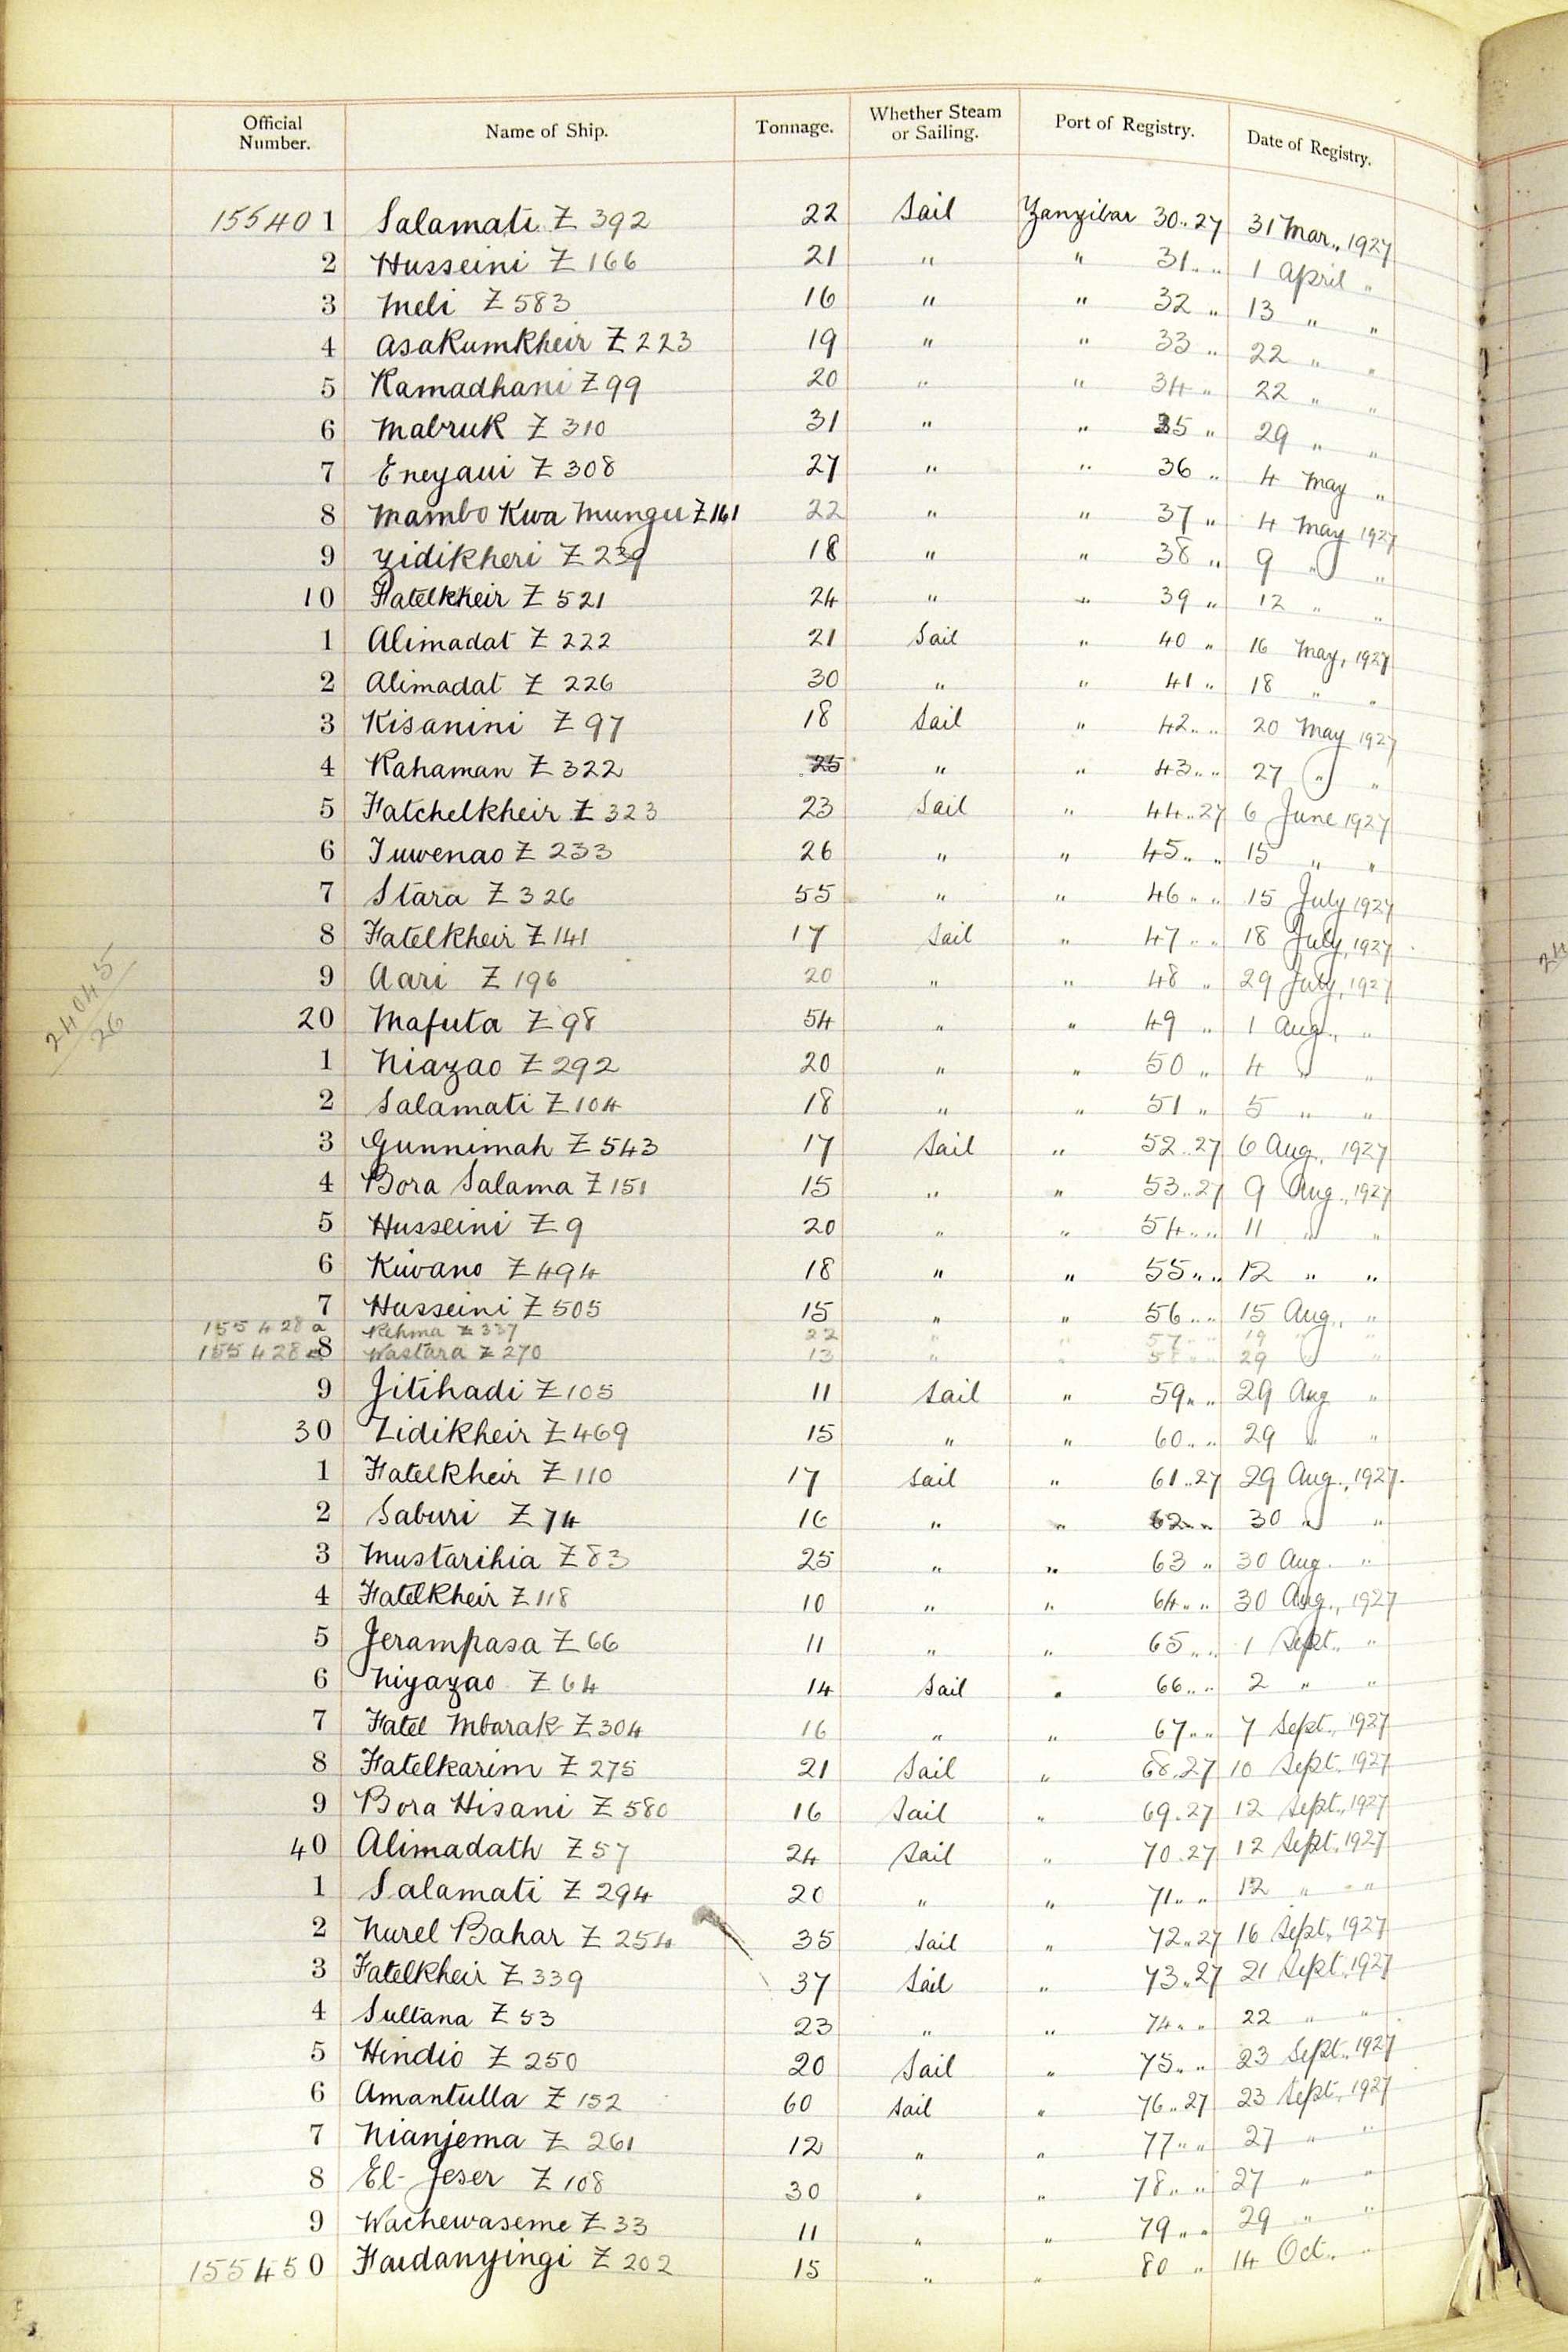 Official Number. Name of Ship. Tonnage. Whether Steam or Sailing. Port of Registry. Date of Registry.
155401 Salamati Z 392 22 Sail Zanzibar 30..27 31 Mar., 1927
2 Husseini Z 166 21 " " 31 .. .. 1 April "
3 Meli Z 583 16 " " 32 .. 13 " "
4 Asakumkheir Z 223 19 " " 33 .. 22 " "
5 Ramadhani Z 99 20 " " 34 .. 22 " "
6 Mabruk Z 310 31 " " 35 .. 29 " "
7 Eneyaui Z 308 27 " " 36 .. 4 May "
8 Mambo Kwa Mungu Z 161 22 " " 37 .. 4 May 1927
9 Zidikheri Z 239 18 " " 38 .. 9 " "
10 Fatelkheir Z 521 24 " " 39 .. 12 " "
1 Alimadat Z 222 21 Sail " 40 .. 16 May, 1927
2 Alimadat Z 226 30 " " 41 .. 18 " "
3 Kisanini Z 97 18 Sail " 42 .. .. 20 May 1927
4 Rahaman Z 322 25 " " 43 .. .. 27 " "
5 Fatchelkheir Z 323 23 Sail " 44..27 6 June 1927
6 Juwenao Z 233 26 " " 45 .. .. 15 " "
7 Stara Z 326 55 " " 46 .. .. 15 July 1927
8 Fatelkheir Z 141 17 Sail " 47 .. .. 18 July, 1927
9 Aari Z 196 20 " " 48 .. 29 July, 1927
24045/26
20 Mafuta Z 98 54 " " 49 .. 1 Aug., "
1 Niazao Z 292 20 " " 50 .. 4 " "
2 Salamati Z 104 18 " " 51 .. 5 " "
3 Gunnimah Z 543 17 Sail " 52..27 6 Aug., 1927
4 Bora Salama Z 151 15 " " 53..27 9 Aug., 1927
5 Husseini Z 9 20 " " 54 .. .. 11 " "
6 Kuvano Z 494 18 " " 55 .. .. 12 " "
7 Husseini Z 505 15 " " 56 .. .. 15 Aug., "
155428a Rehma Z 337 22 " " 57 .. .. 19 " "
155428 8 Wastara Z 270 13 " " 58 .. .. 29 " "
9 Jitihadi Z 105 11 Sail " 59 .. .. 29 Aug "
30 Zidikheir Z 469 15 " " 60 .. .. 29 " "
1 Fatelkheir Z 110 17 Sail " 61..27 29 Aug., 1927.
2 Saburi Z 74 16 " " 62 .. .. 30 " "
3 Mustarihia Z 83 25 " " 63 .. 30 Aug. "
4 Fatelkheir Z 118 10 " " 64 .. .. 30 Aug., 1927
5 Jerampasa Z 66 11 " " 65 .. .. 1 Sept., "
6 Niyazao Z 64 14 Sail " 66 .. .. 2 " "
7 Fatel Mbarak Z 304 16 " " 67 .. .. 7 Sept., 1927
8 Fatelkarim Z 275 21 Sail " 68..27 10 Sept., 1927
9 Bora Hisani Z 580 16 Sail " 69..27 12 Sept., 1927
40 Alimadath Z 57 24 Sail " 70..27 12 Sept. 1927
1 Salamati Z 294 20 " " 71 .. .. 12 " "
2 Nurel Bahar Z 254 35 Sail " 72..27 16 Sept., 1927
3 Fatelkheir Z 339 37 Sail " 73..27 21 Sept., 1927
4 Sultana Z 53 23 " " 74 .. .. 22 " "
5 Hindio Z 250 20 Sail " 75 .. .. 23 Sept., 1927
6 Amantulla Z 152 60 Sail " 76..27 23 Sept., 1927
7 Nianjema Z 261 12 " " 77 .. .. 27 " "
8 El-Jeser Z 108 30 " " 78 .. .. 27 " "
9 Wachewaseme Z 33 11 " " 79 .. .. 29 " "
155450 Faidanyingi Z 202 15 " " 80 .. 14 Oct., "